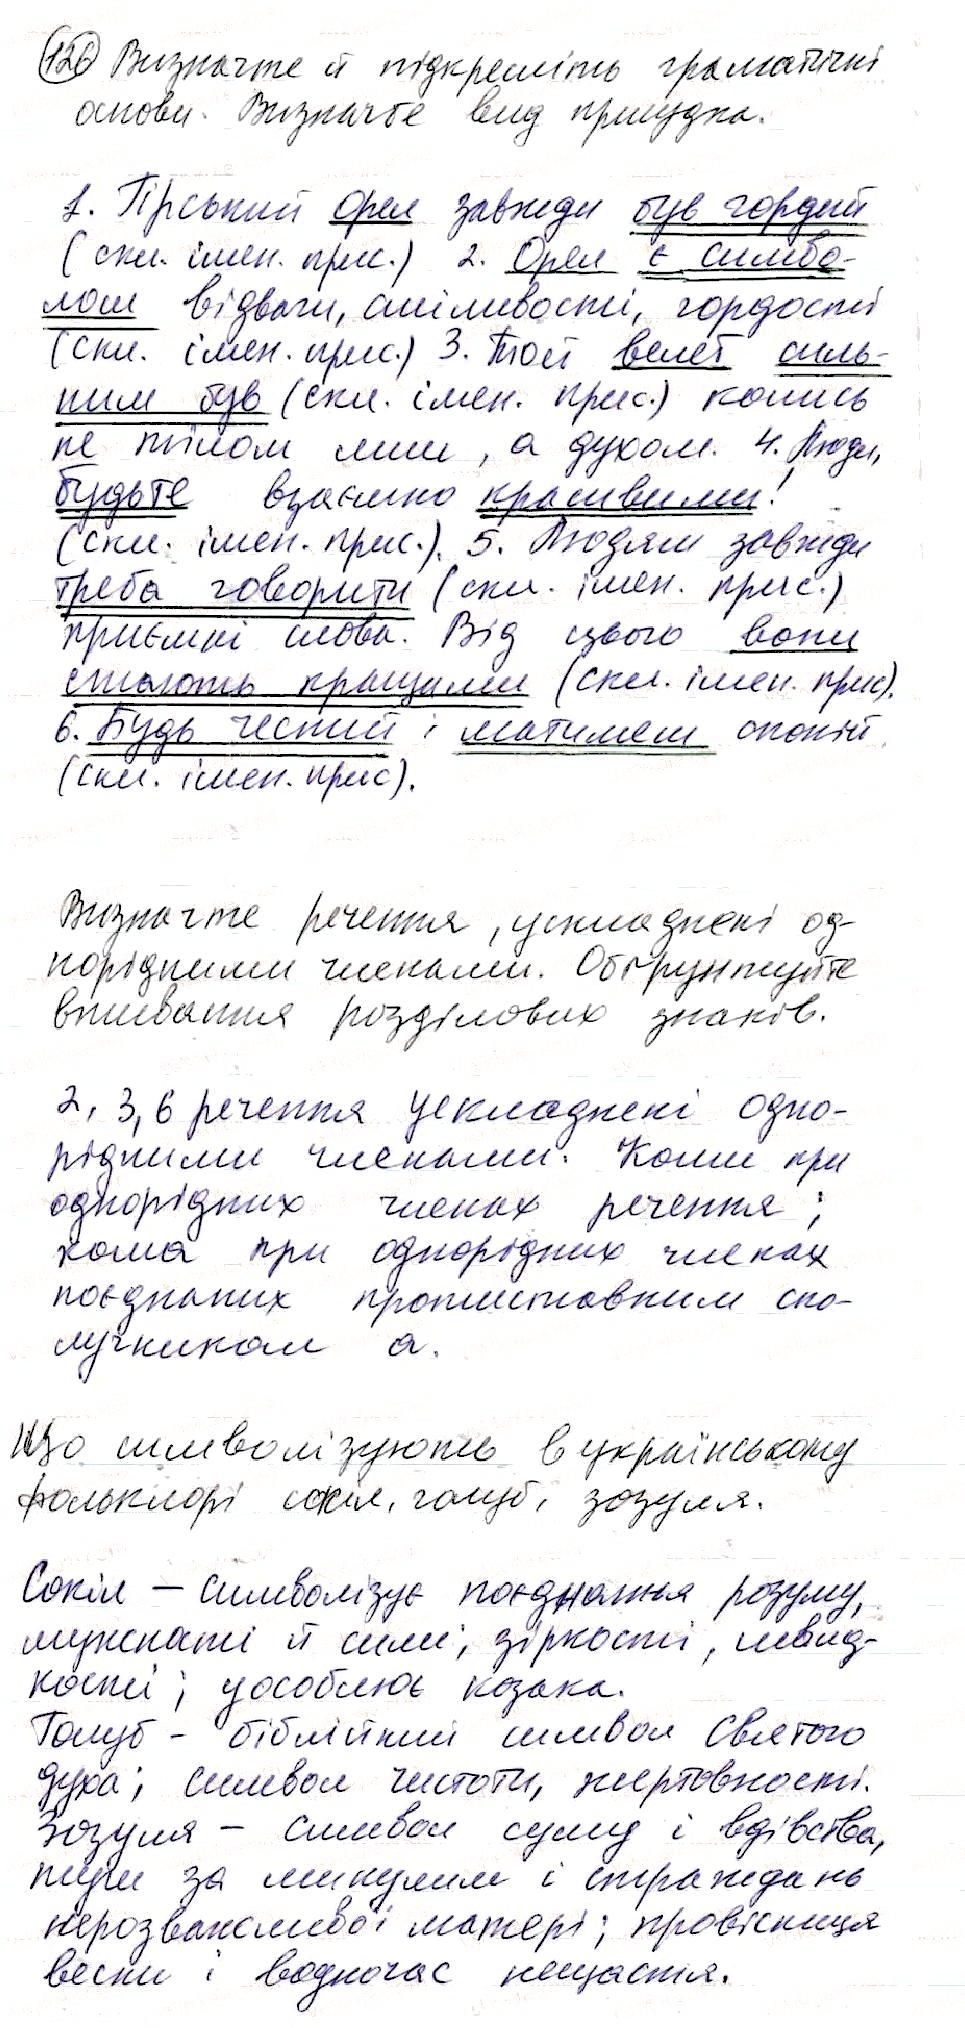 126 Визначте й підкресліть граматичні
основи. Визначте вид присудка.
1. Гірський орел завжди був гордий
(скл. імен. прис.) 2. Орел є симво-
лом відваги, сміливості, гордості
(скл. імен. прис.) 3. Той велет силь-
ним був (скл. імен. прис.) колись
не тілом лиш, а духом. 4. Люди,
будьте взаємно красивими!
(скл. імен. прис.). 5. Людям завжди
треба говорити (скл. імен. прис.)
приємні слова. Від цього вони
стають кращими (скл. імен. прис).
6. Будь чесний і матимеш спокій
(скл. імен. прис).
Визначте речення, ускладнені од-
норідними членами. Обґрунтуйте
вживання розділових знаків.
2, 3, 6 речення ускладнені одно-
рідними членами. Коми при
однорідних членах речення;
кома при однорідних членах
поєднаних протиставним спо-
лучником а.
Що символізують в українському
фольклорі сокіл, голуб, зозуля.
Сокіл – символізує поєднання розуму,
мужності й сили; зіркості, швид-
кості; уособлює козака.
Голуб - біблійний символ Святого
духа; символ чистоти, жертовності.
Зозуля – символ суму і вдівства,
туги за минулим і страждань
нерозважливої матері; провісниця
весни і водночас нещастя.